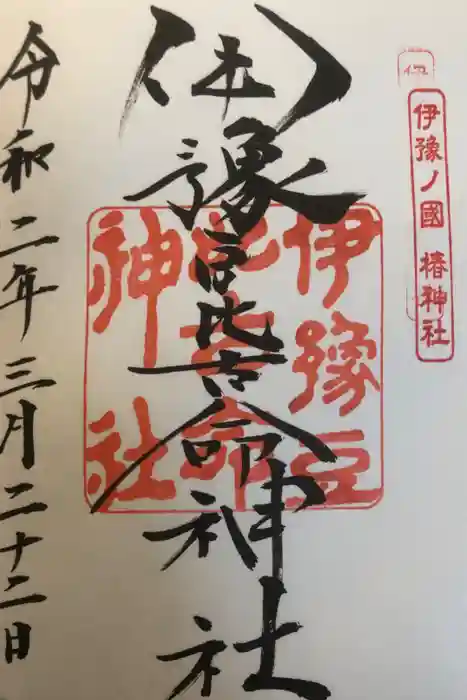 伊豫ノ國 椿神社
伊豫豆比古命神社
伊豫豆
比古命
神社
令和二年三月二十二日